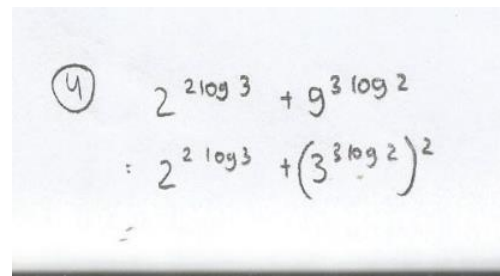 4 2^{2 log 3} + 9^{3 log 2}
: 2^{2 log 3} + (3^{3 log 2})^2
=